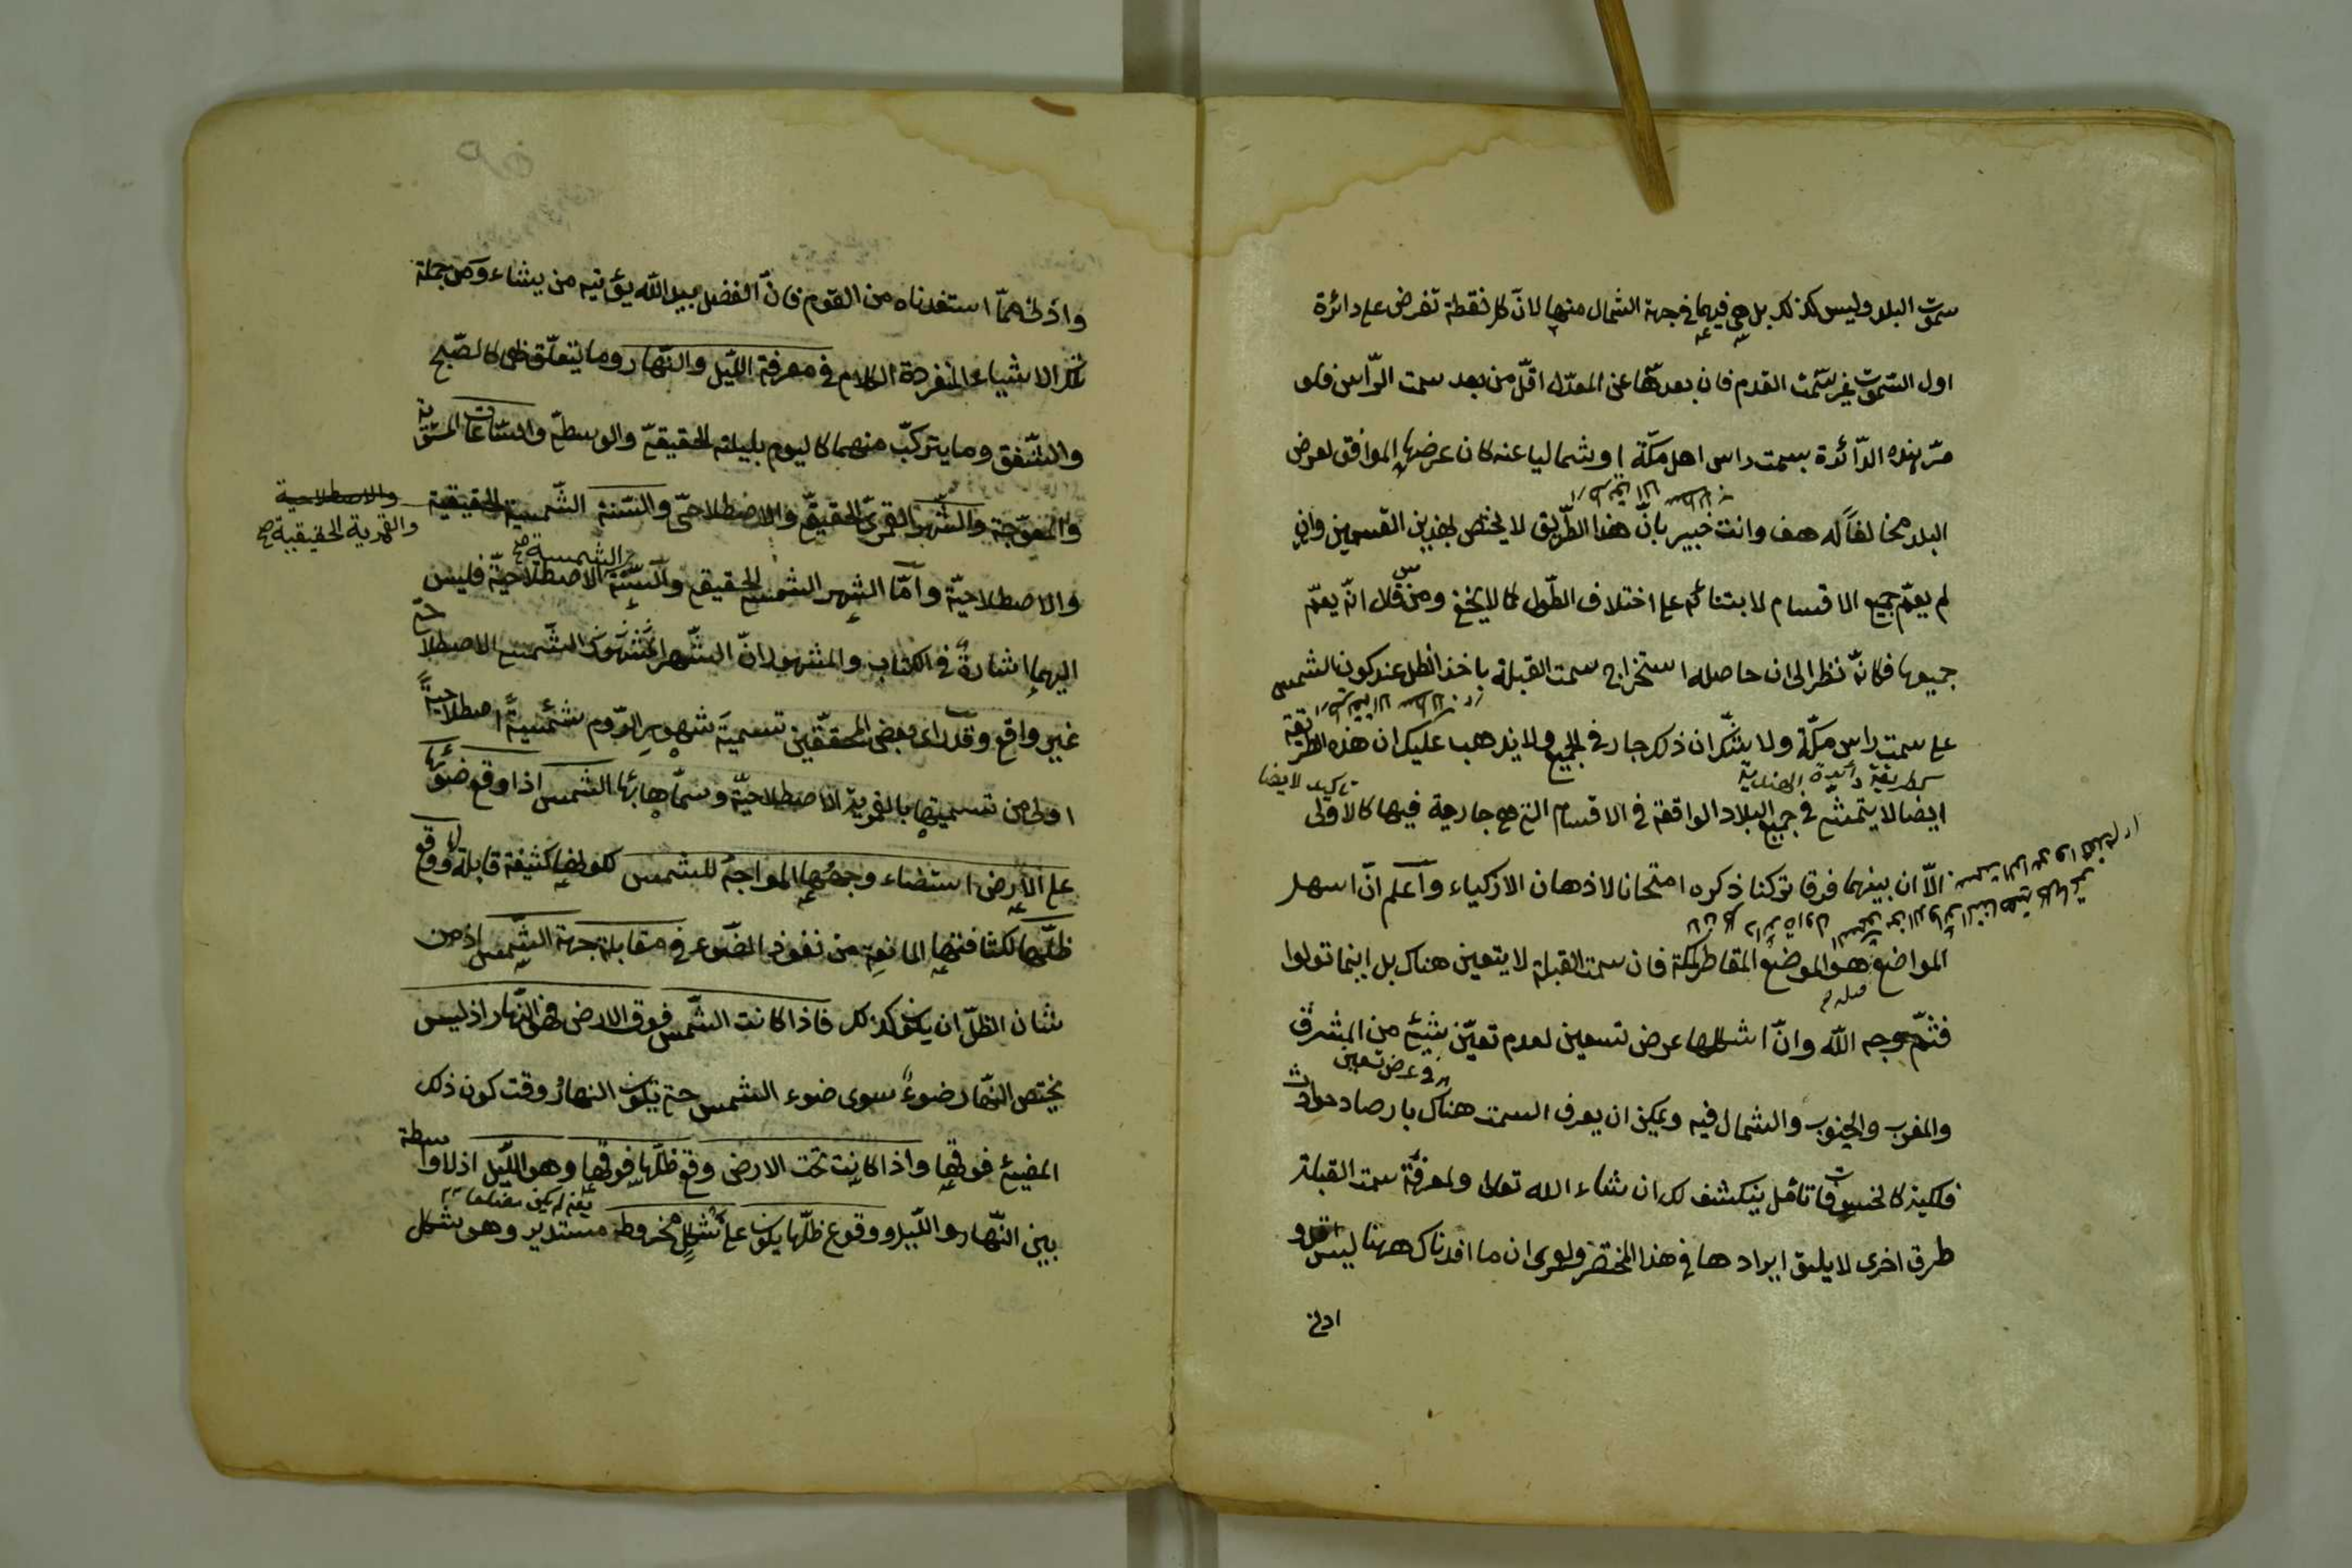 سموت البلد وليس كذلك بل هي فيهما في جهة الشمال منها لان كل نقطة تفرض على دائرة
اول السموت غير سمت القدم فان بعدها عن المعدل اقل من بعد سمت الراس فلو
مر بهذه الدائرة بسمت راس اهل مكة او شماليا عنه كان عرضها الموافق لعرض
البلد مخالفا له هف وانت خبير بان هذا الطريق لا يختص بهذين القسمين وان
لم يعم جميع الاقسام لابتنائه على اختلاف الطول كما لا يخفى ومن قال انه يعم
جميعها فكانه نظر الى ان حاصله استخراج سمت القبلة باخذ الظل عند كون الشمس
على سمت راس مكة ولا شك ان ذلك جار في الجميع ولا يذهب عليك ان هذه الطريقة
كطريقة دائرة الهندية
تاكيد لايضا
ايضا لا يتمشى في جميع البلاد الواقعة في الاقسام التي هي جارية فيها كالاولى
الا ان بينهما فرقا تركنا ذكره امتحانا لاذهان الاذكياء واعلم ان اسهل
المواضع هو الموضع المقاطر لمكة فان سمت القبلة لا يتعين هناك بل اينما تولوا
فثم وجه الله وان اشكلها عرض تسعين لعدم تعين شيئ من المشرق
عرض تسعين
والمغرب والجنوب والشمال فيه ويمكن ان يعرف السمت هناك بارصاد حوادث
فلكية كالخسوفات تامل ينكشف لك ان شاء الله تعالى ولمعرفة سمت القبلة
طرق اخرى لا يليق ايرادها في هذا المختصر ولعمرى ان ما افدناك ههنا ليس اقل و
ادنى
وادنى مما استفدناه من القوم فان الفضل بيد الله يؤتيه من يشاء ومن جملة
تلك الاشياء المنفردة الكلام في معرفة الليل والنهار وما يتعلق بهما كالصبح
والشفق وما يتركب منهما كاليوم بليلته الحقيقي والوسطي والساعات المستوية
والمعوجة والشهر القمري الحقيقي والاصطلاحي والسنة الشمسية الحقيقية
والاصطلاحية
والقمرية الحقيقية صح
الشمسية صح
والاصطلاحية واما الشهر الشمسي الحقيقي والسنة الاصطلاحية فليس
اليهما اشارة في الكتاب والمشهور ان الشهر الشمسي الاصطلاحي
غير واقع وقد راى بعض المحققين تسمية شهور الروم شمسية اصطلاحية
اولى من تسميتها بالقمرية الاصطلاحية وسماها بها الشمس اذا وقع ضوئها
على الارض استضاء وجهها المواجه للشمس لكونها كثيفة قابلة له ووقع
ظلها لكثافتها المانعة من نفوذ الضوء في مقابلة جهة الشمس اذ من
شان الظل ان يكون كذلك فاذا كانت الشمس فوق الارض فهو النهار اذ ليس
يختص النهار ضوء سوى ضوء الشمس حتى يكون النهار وقت كون ذلك
المضيئ فوقها واذا كانت تحت الارض وقع ظلها فوقها وهو الليل اذ لا واسطة
بين النهار والليل ووقوع ظلها يكون على شكل مخروط مستدير وهو شكل